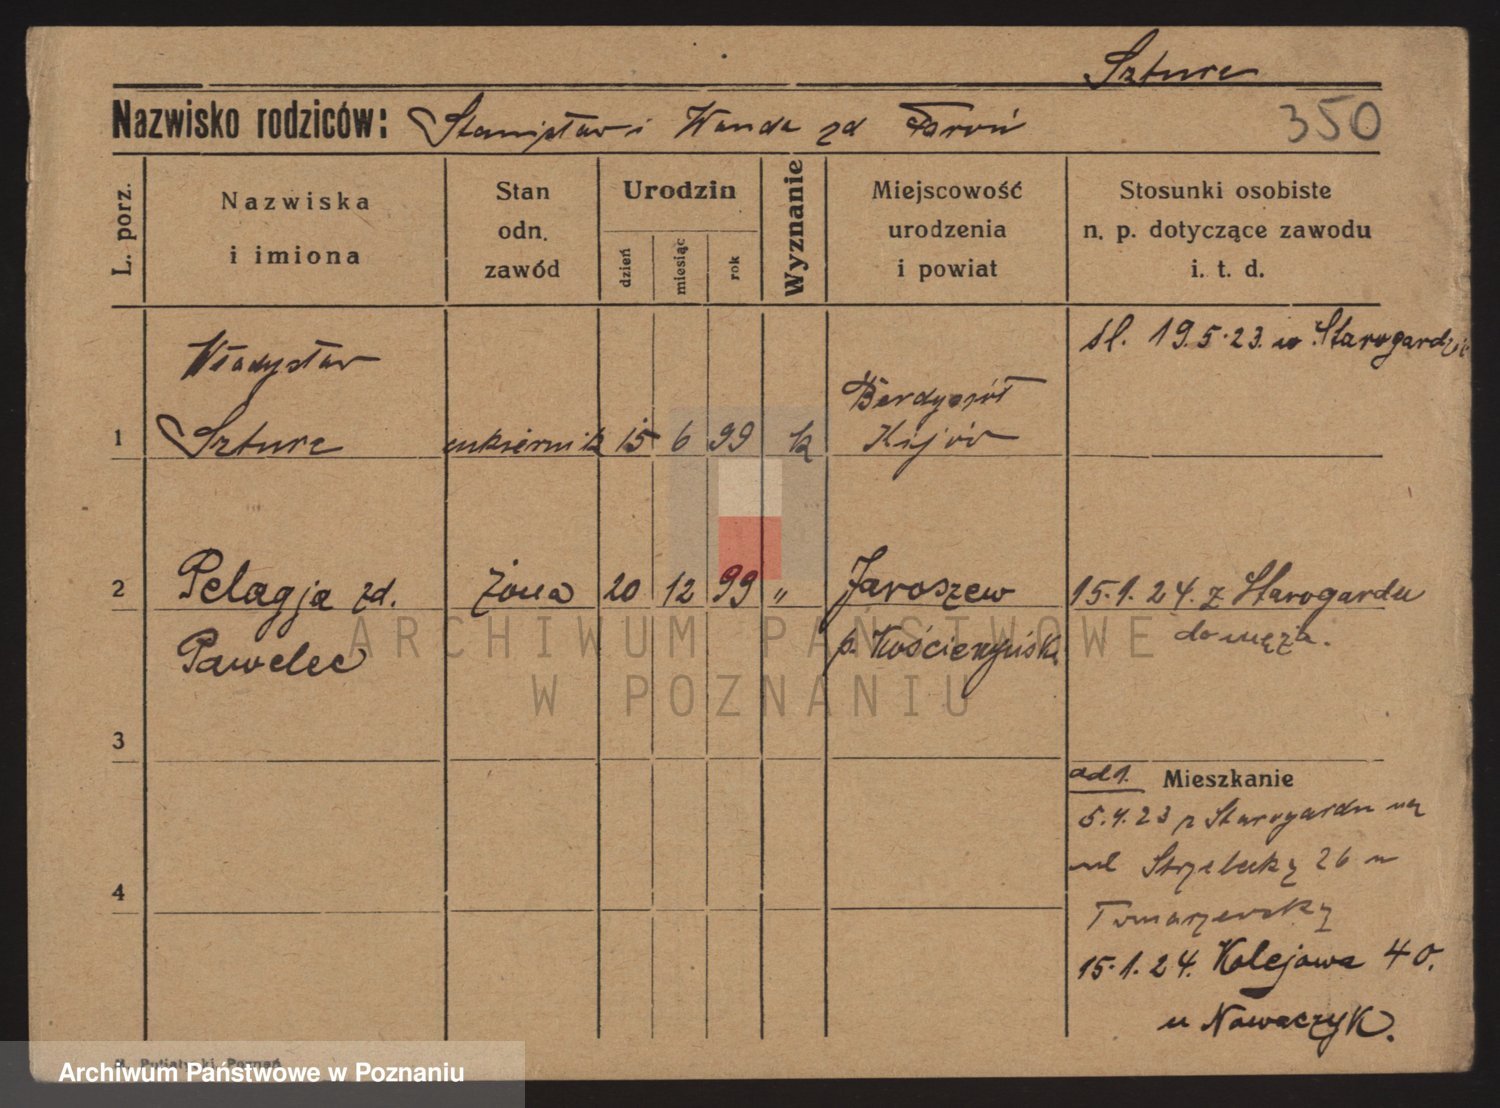 Szturc
Nazwisko rodziców: Stanisław i Wanda zd
350
L. porz.
Nazwiska
i imiona
Stan
odn.
zawód
Urodzin
dzień
miesiąc
rok
Wyznanie
Miejscowość
urodzenia
i powiat
Stosunki osobiste
n. p. dotyczące zawodu
i. t. d.
Władysław
Szturc
1
cukiernik 15 6 99 k
Kijów
śl. 19.5.23. w Starogardzie
2
Pelagja zd.
Pawelec
żona 20 12 99 "
Jaroszew
p.
15.1.24. z Starogardu
do męża.
ARCHIWUM PAŃSTWOWE
W POZNANIU
3
4
ad 1. Mieszkanie
5.4.23 z Starogardu na
ul Strzelecką 26 u
Tomaszewsky
15.1.24. Kolejowa 40.
u Nowaczyk.
Poznań
Archiwum Państwowe w Poznaniu